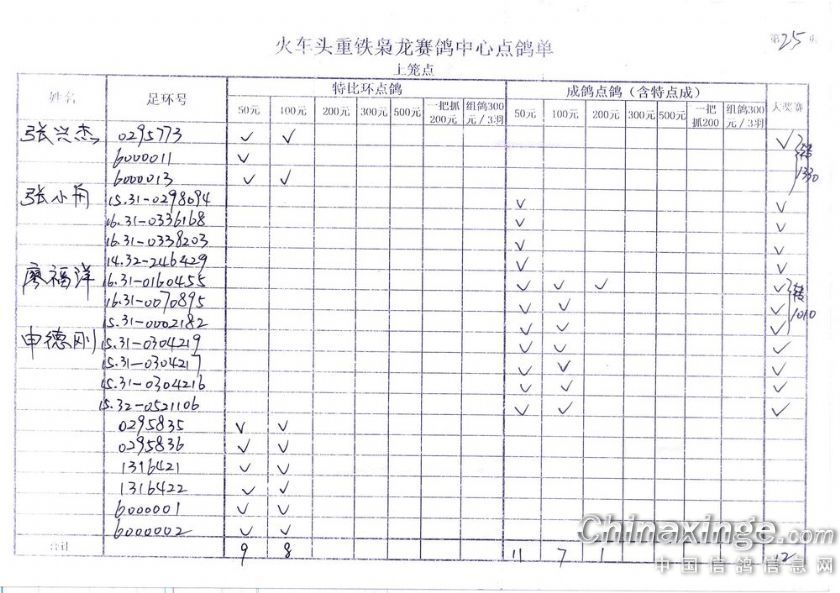 第25页
火车头重铁枭龙赛鸽中心点鸽单
上笼点
姓名 足环号 特比环点鸽 成鸽点鸽（含特点成） 大奖赛
50元 100元 200元 300元 500元 一把抓200元 组鸽300元/3羽 50元 100元 200元 300元 500元 一把抓200 组鸽300元/3羽
张兴杰 0295773 ✓ ✓ ✓
6000011 ✓
6000013 ✓ ✓ 1330
张小雨 15.31-0298094 ✓ ✓
16.31-0336168 ✓ ✓
16.31-0338203 ✓ ✓
14.32-246429 ✓ ✓
廖福洋 16.31-0160455 ✓ ✓ ✓ ✓
16.31-0070895 ✓ ✓ ✓ 1010
15.31-0002182 ✓ ✓ ✓
申德刚 15.31-0304219 ✓ ✓ ✓
15.31-0304217 ✓ ✓ ✓
15.31-0304216 ✓ ✓ ✓
15.32-0521106 ✓ ✓ ✓
0295835 ✓ ✓
0295836 ✓ ✓
1316421 ✓ ✓
1316422 ✓ ✓
6000001 ✓ ✓
6000002 ✓ ✓
合计 9 8 11 7 1 12
Chinaxinge.com
中国信鸽信息网